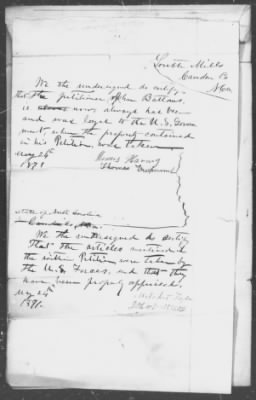 South Mills
Camden Co
N Ca
We the undersigned do certify
that the petitioner
is now & always has been
and was loyal to the U.S. Govern
ment, when the property contained
in his Petition were taken
May 24th
1871
Thomas
State of North Carolina
Camden Co.
We the undersigned do certify
That the articles mentioned in
the within Petition were taken by
the U.S. Forces, and that they
have been properly appraised.
May 24th
1871.